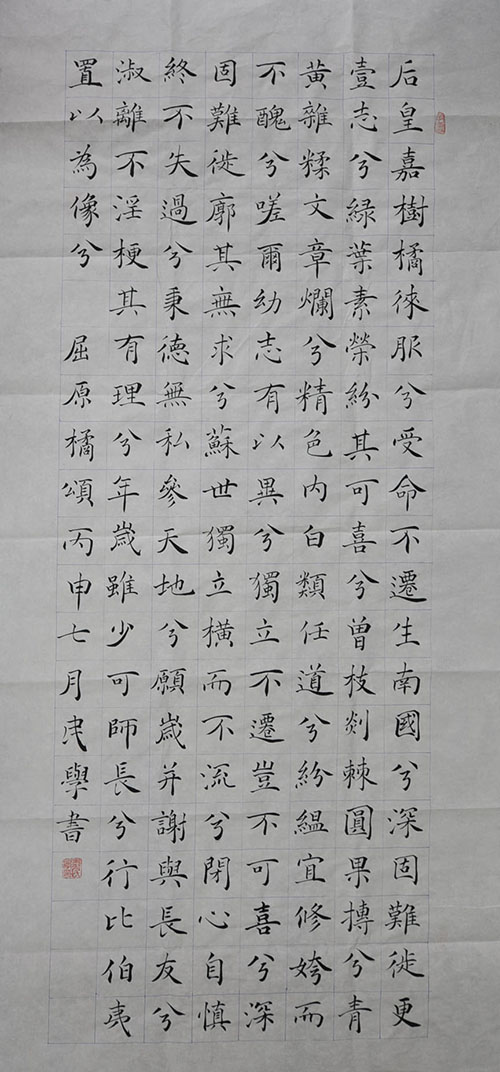 后皇嘉樹橘徠服兮受命不遷生南國兮深固難徙更
壹志兮緑葉素榮紛其可喜兮曾枝剡棘圓果摶兮青
黄雜糅文章爛兮精色内白類任道兮紛緼宜修姱而
不醜兮嗟爾幼志有以異兮獨立不遷豈不可喜兮深
固難徙廓其無求兮蘇世獨立橫而不流兮閉心自慎
終不失過兮秉徳無私參天地兮願歲并謝與長友兮
淑離不淫梗其有理兮年歲雖少可師長兮行比伯夷
置以為像兮 屈原橘頌丙申七月民學書